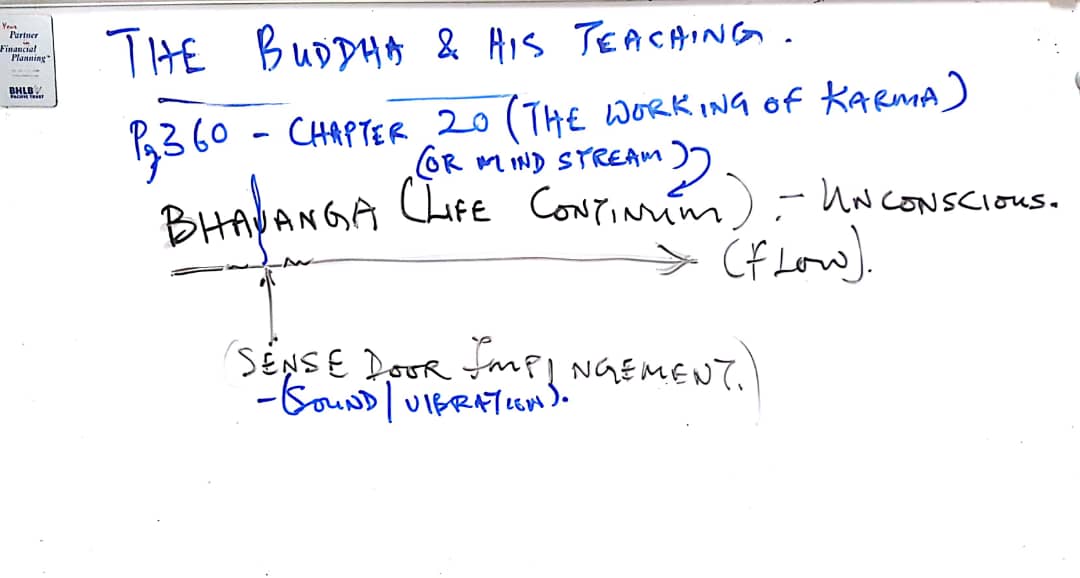 Your
Partner
in
Financial
Planning
BHLB
PACIFIC TRUST
THE BUDDHA & HIS TEACHING.
Pg 360 - CHAPTER 20 (THE WORKING OF KARMA)
(OR MIND STREAM)
BHAVANGA (LIFE CONTINUM) :- UNCONSCIOUS.
(FLOW).
(SENSE DOOR IMPINGEMENT.)
-(SOUND/VIBRATION).